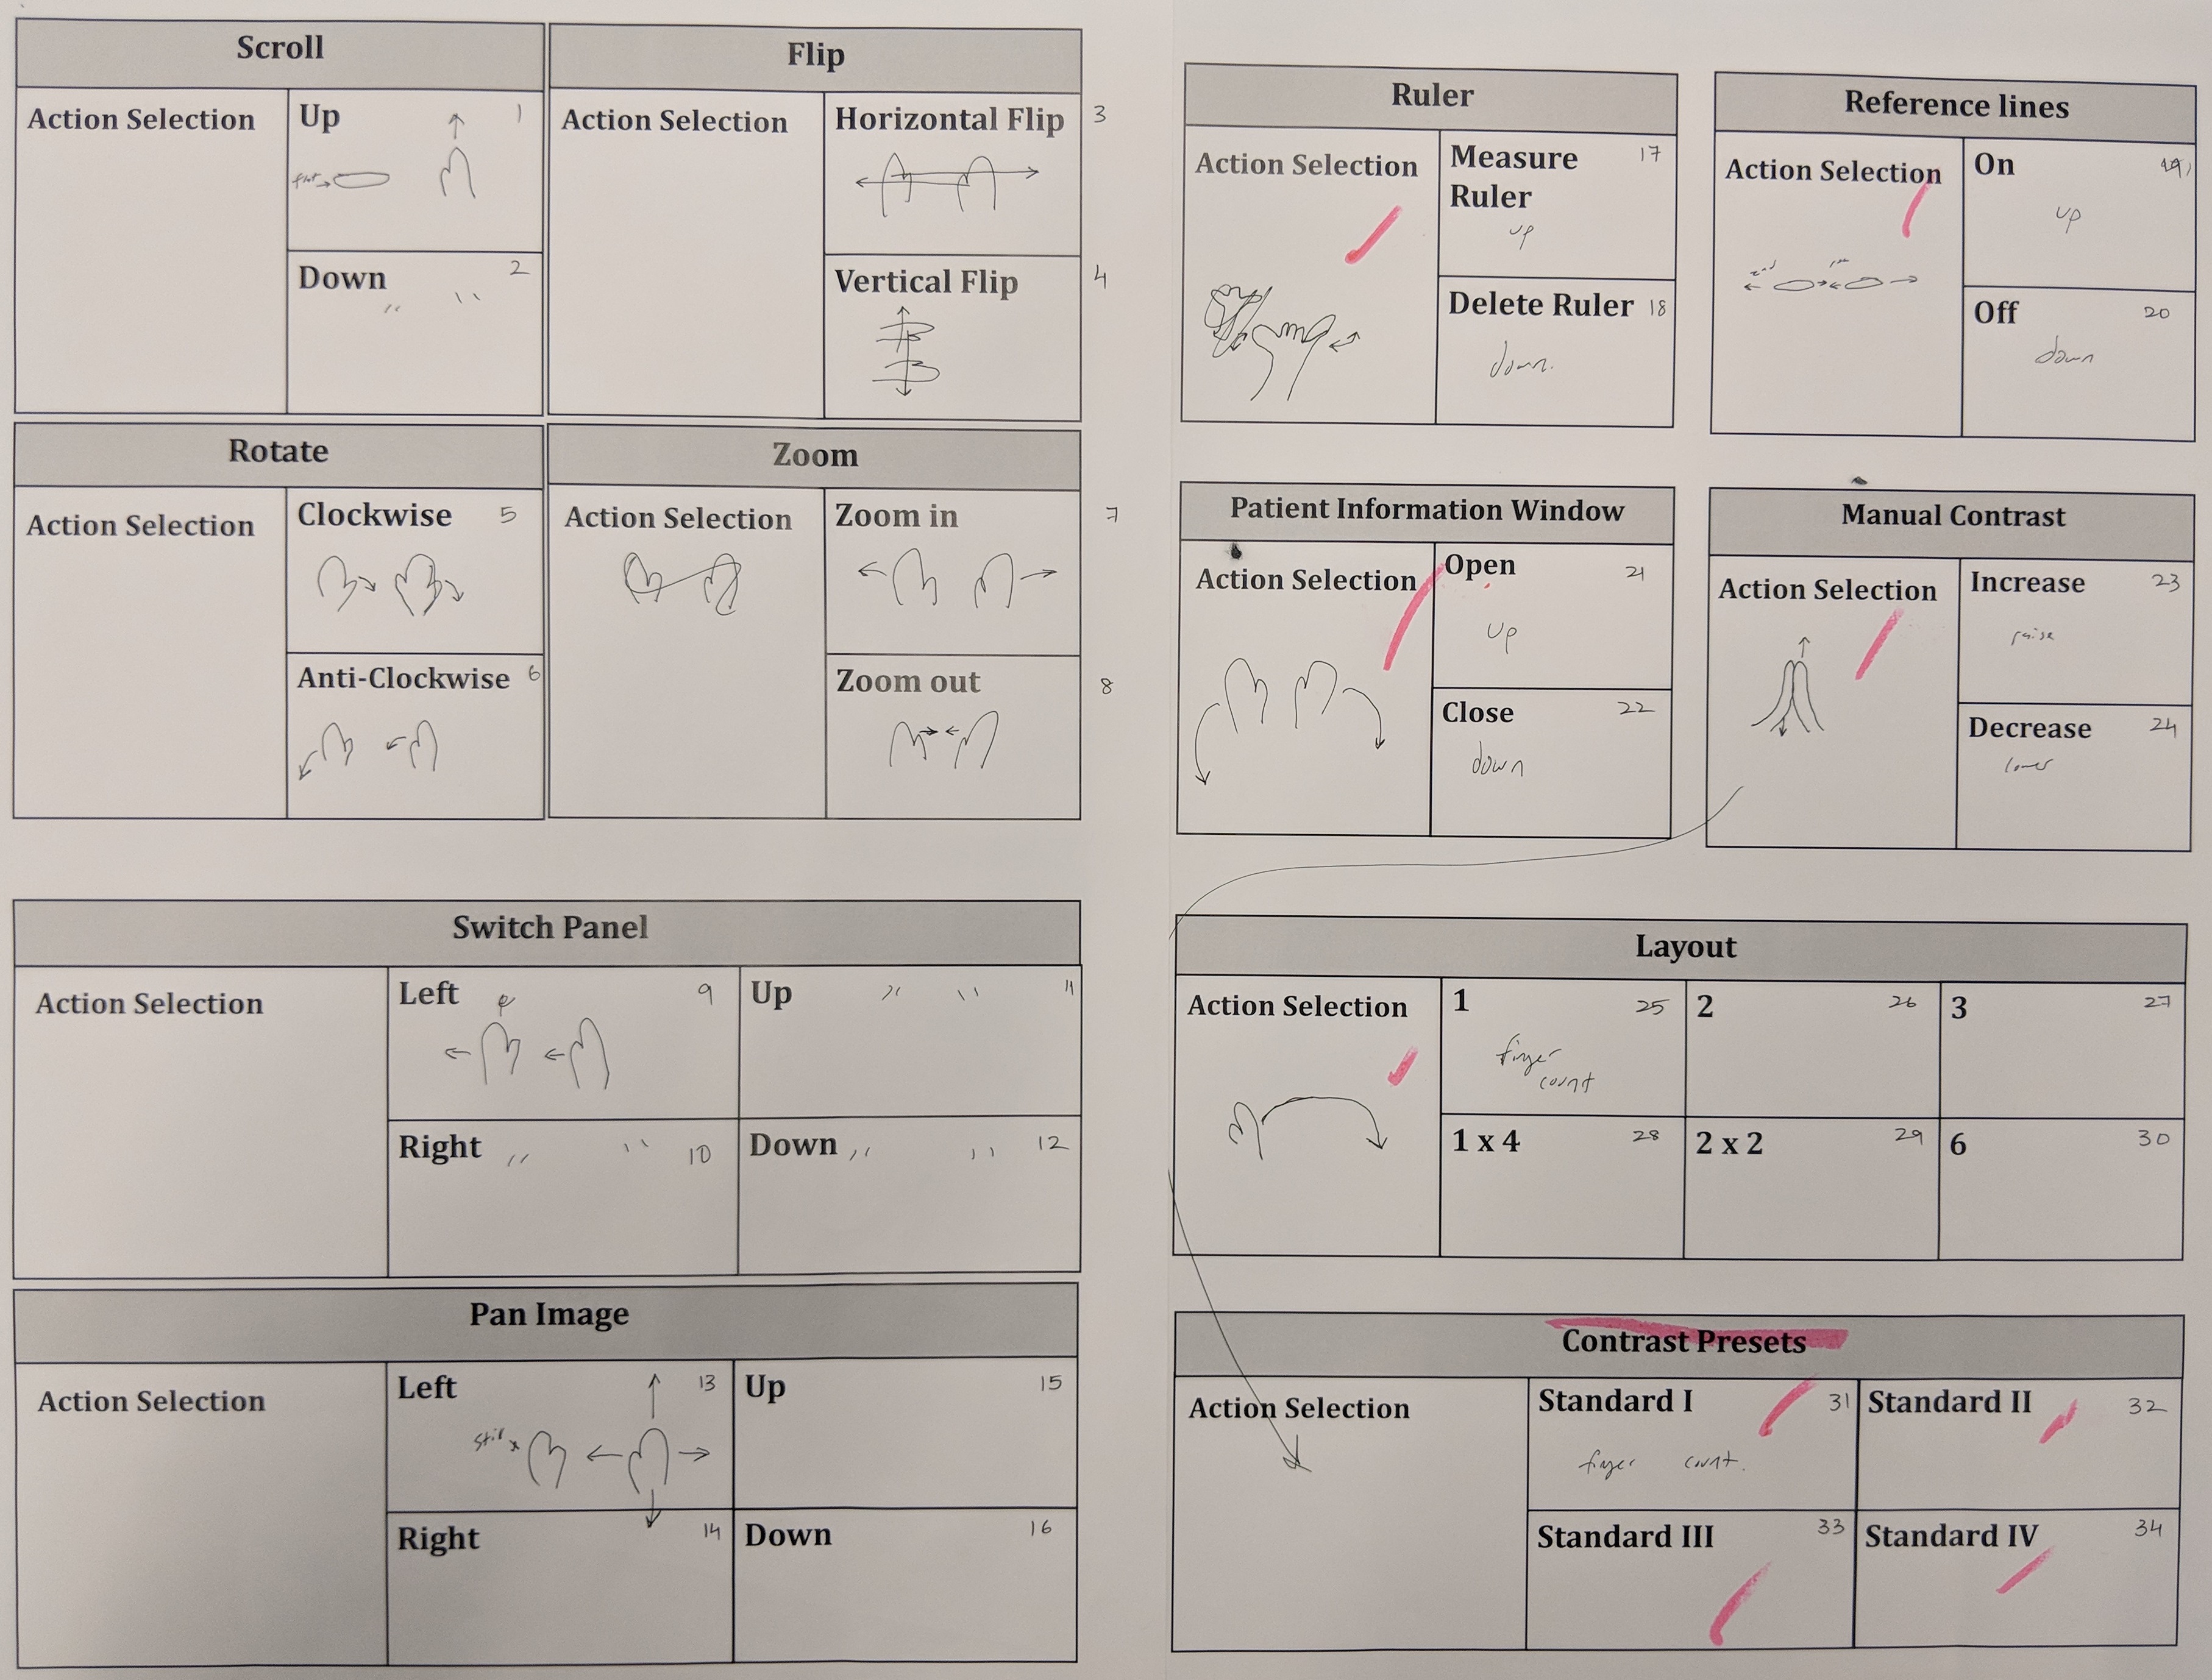 Scroll
Action Selection
Up 1
flat
Down 2
" "
Flip
Action Selection
Horizontal Flip 3
Vertical Flip 4
Rotate
Action Selection
Clockwise 5
Anti-Clockwise 6
Zoom
Action Selection
Zoom in 7
Zoom out 8
Switch Panel
Action Selection
Left 9
Up " " 11
Right " " 10
Down " " 12
Pan Image
Action Selection
Left 13
still
Up 15
Right 14
Down 16
Ruler
Action Selection
Measure 17
Ruler
up
Delete Ruler 18
down.
Reference lines
Action Selection
On 19
up
Off 20
down
Patient Information Window
Action Selection
Open 21
up
Close 22
down
Manual Contrast
Action Selection
Increase 23
raise
Decrease 24
lower
Layout
Action Selection
1 25
finger
count
2 26
3 27
1 x 4 28
2 x 2 29
6 30
Contrast Presets
Action Selection
Standard I 31
finger count.
Standard II 32
Standard III 33
Standard IV 34